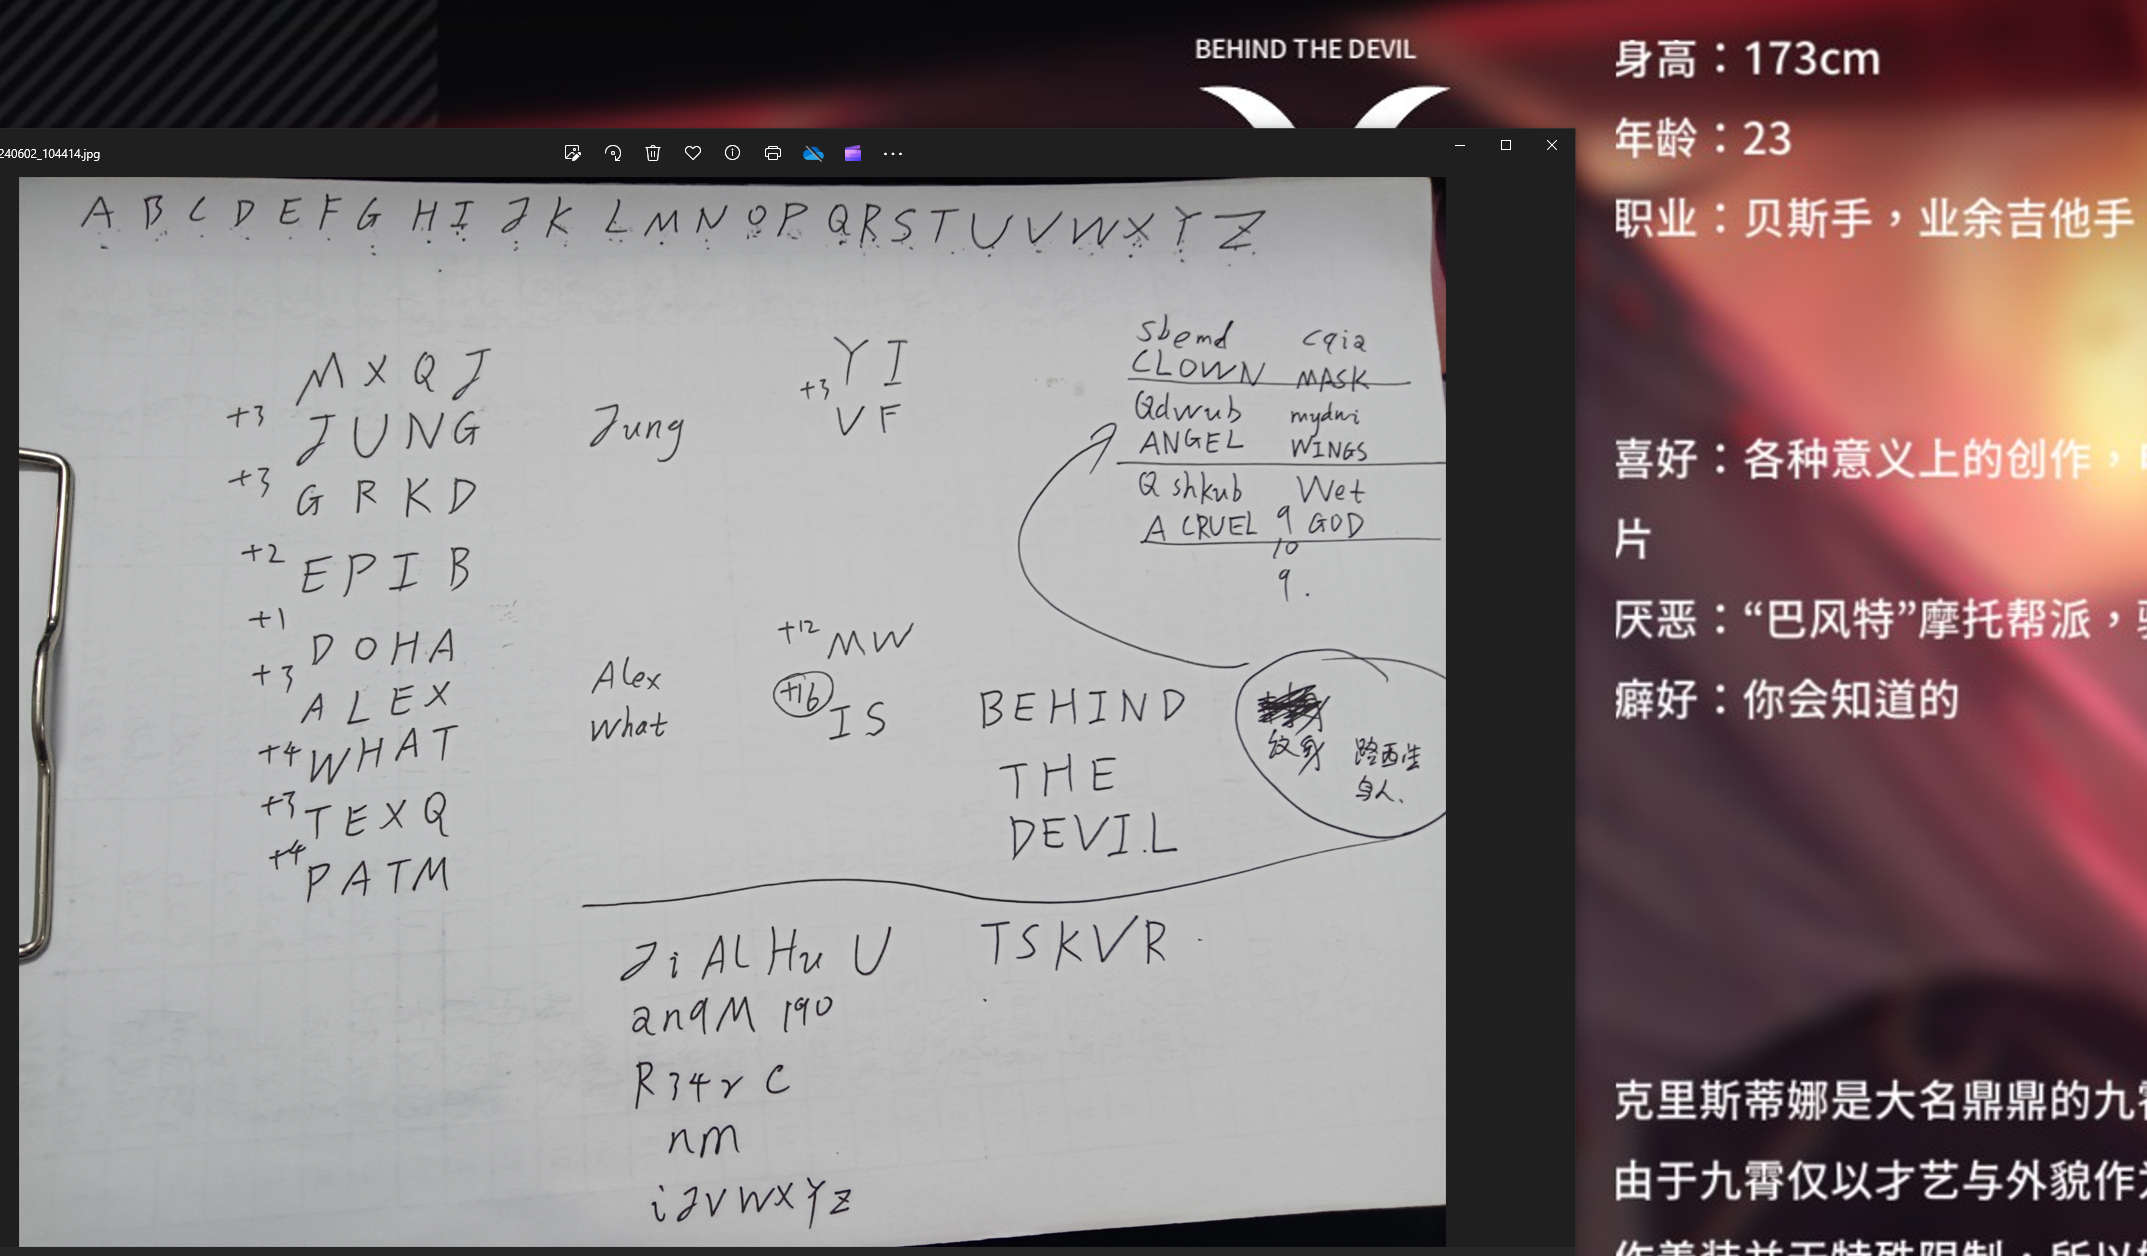 BEHIND THE DEVIL
身高：173cm
年龄：23
职业：贝斯手，业余吉他手
喜好：各种意义上的创作，
片
厌恶：“巴风特”摩托帮派，
癖好：你会知道的
克里斯蒂娜是大名鼎鼎的九
由于九霄仅以才艺与外貌作
240602_104414.jpg
A B C D E F G H I J K L M N O P Q R S T U V W X Y Z
M X Q J
+3 J U N G
+3 G R K D
+2 E P I B
+1 D O H A
+3 A L E X
+4 W H A T
+3 T E X Q
+4 P A T M
Jung
Alex
What
Y I
+3
V F
+12 M W
+16 I S
sbemd cqia
CLOWN MASK
Qdwub mydwi
ANGEL WINGS
Q shkub Wet
A CRUEL 9 GOD
10
9.
BEHIND
THE
DEVIL
纹身 路西生
身人.
Ji AL Hu U TSKVR
anqM 190
R34r C
nm
iJVWXYZ